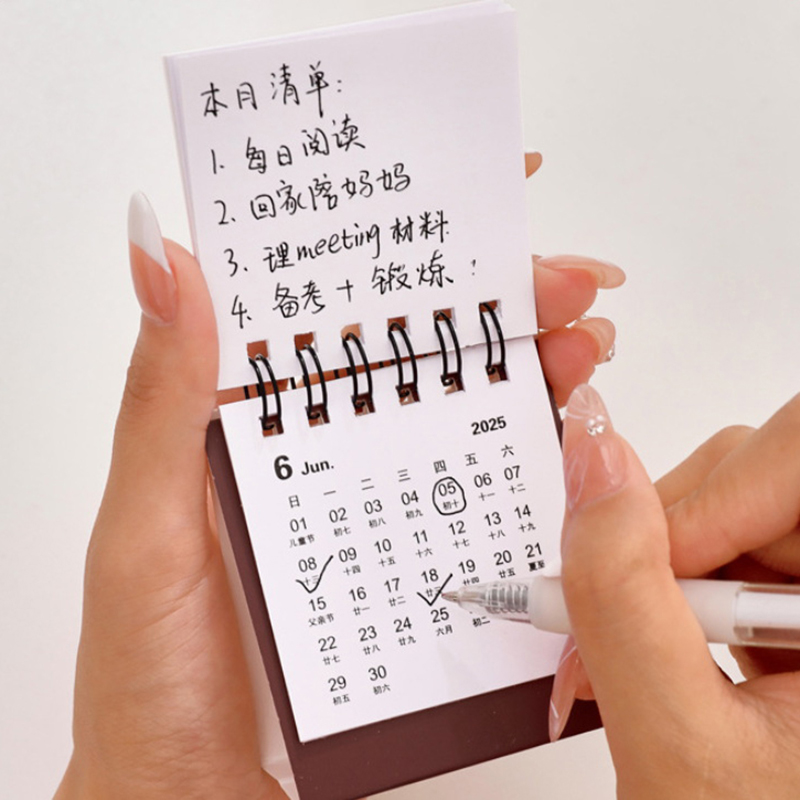 本月清单:
1. 每日阅读
2. 回家陪妈妈
3. 理meeting材料
4. 备考 + 锻炼!
2025
6 Jun.
日 一 二 三 四 五 六
01 02 03 04 05 06 07
儿童节 初七 初八 初九 初十 十一 十二
08 09 10 11 12 13 14
十三 十四 十五 十六 十七 十八 十九
15 16 17 18 19 20 21
父亲节 廿一 廿二 廿三 廿四 廿五 夏至
22 23 24 25
廿七 廿八 廿九 六月 初二
29 30
初五 初六